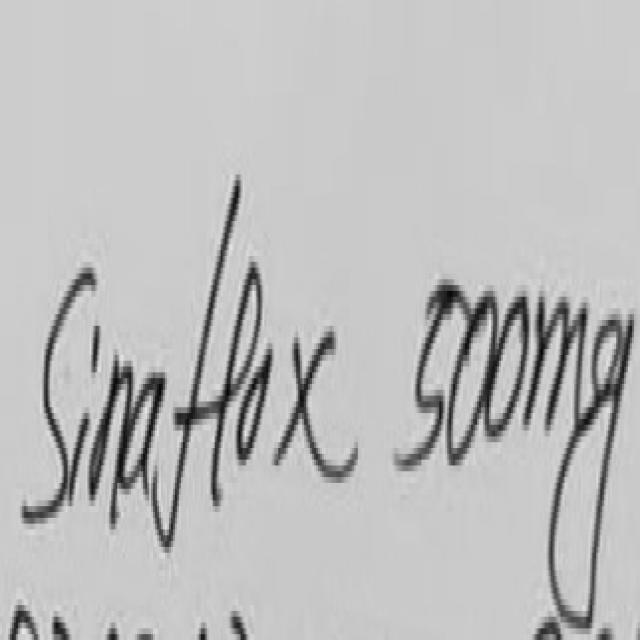 Sinaflox 500mg